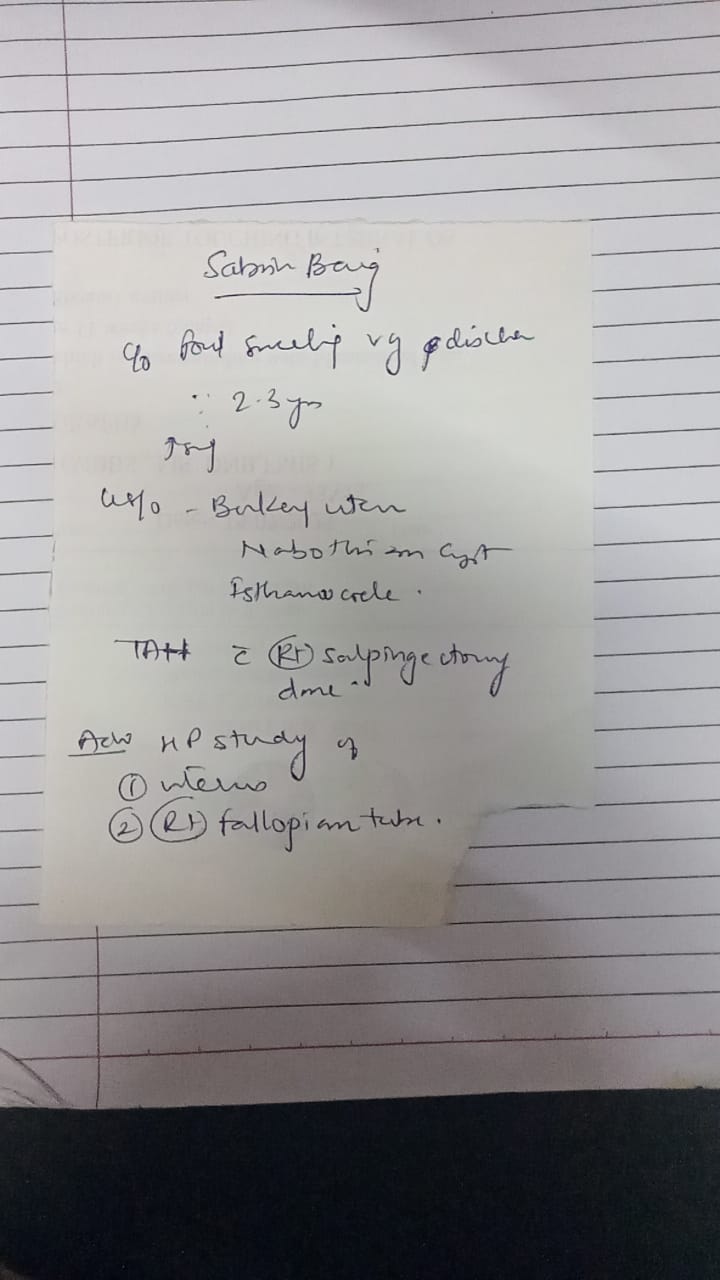 Sabrin Baig
c/o foul smelling vg discha
∵ 2-3 yrs
US/o - Bulkey uterus
Nabothian Cyst
Isthamocoele.
TAH c̄ (Rt) salpingectomy
done
Adv HP study of
① uterus
② (Rt) fallopian tube.